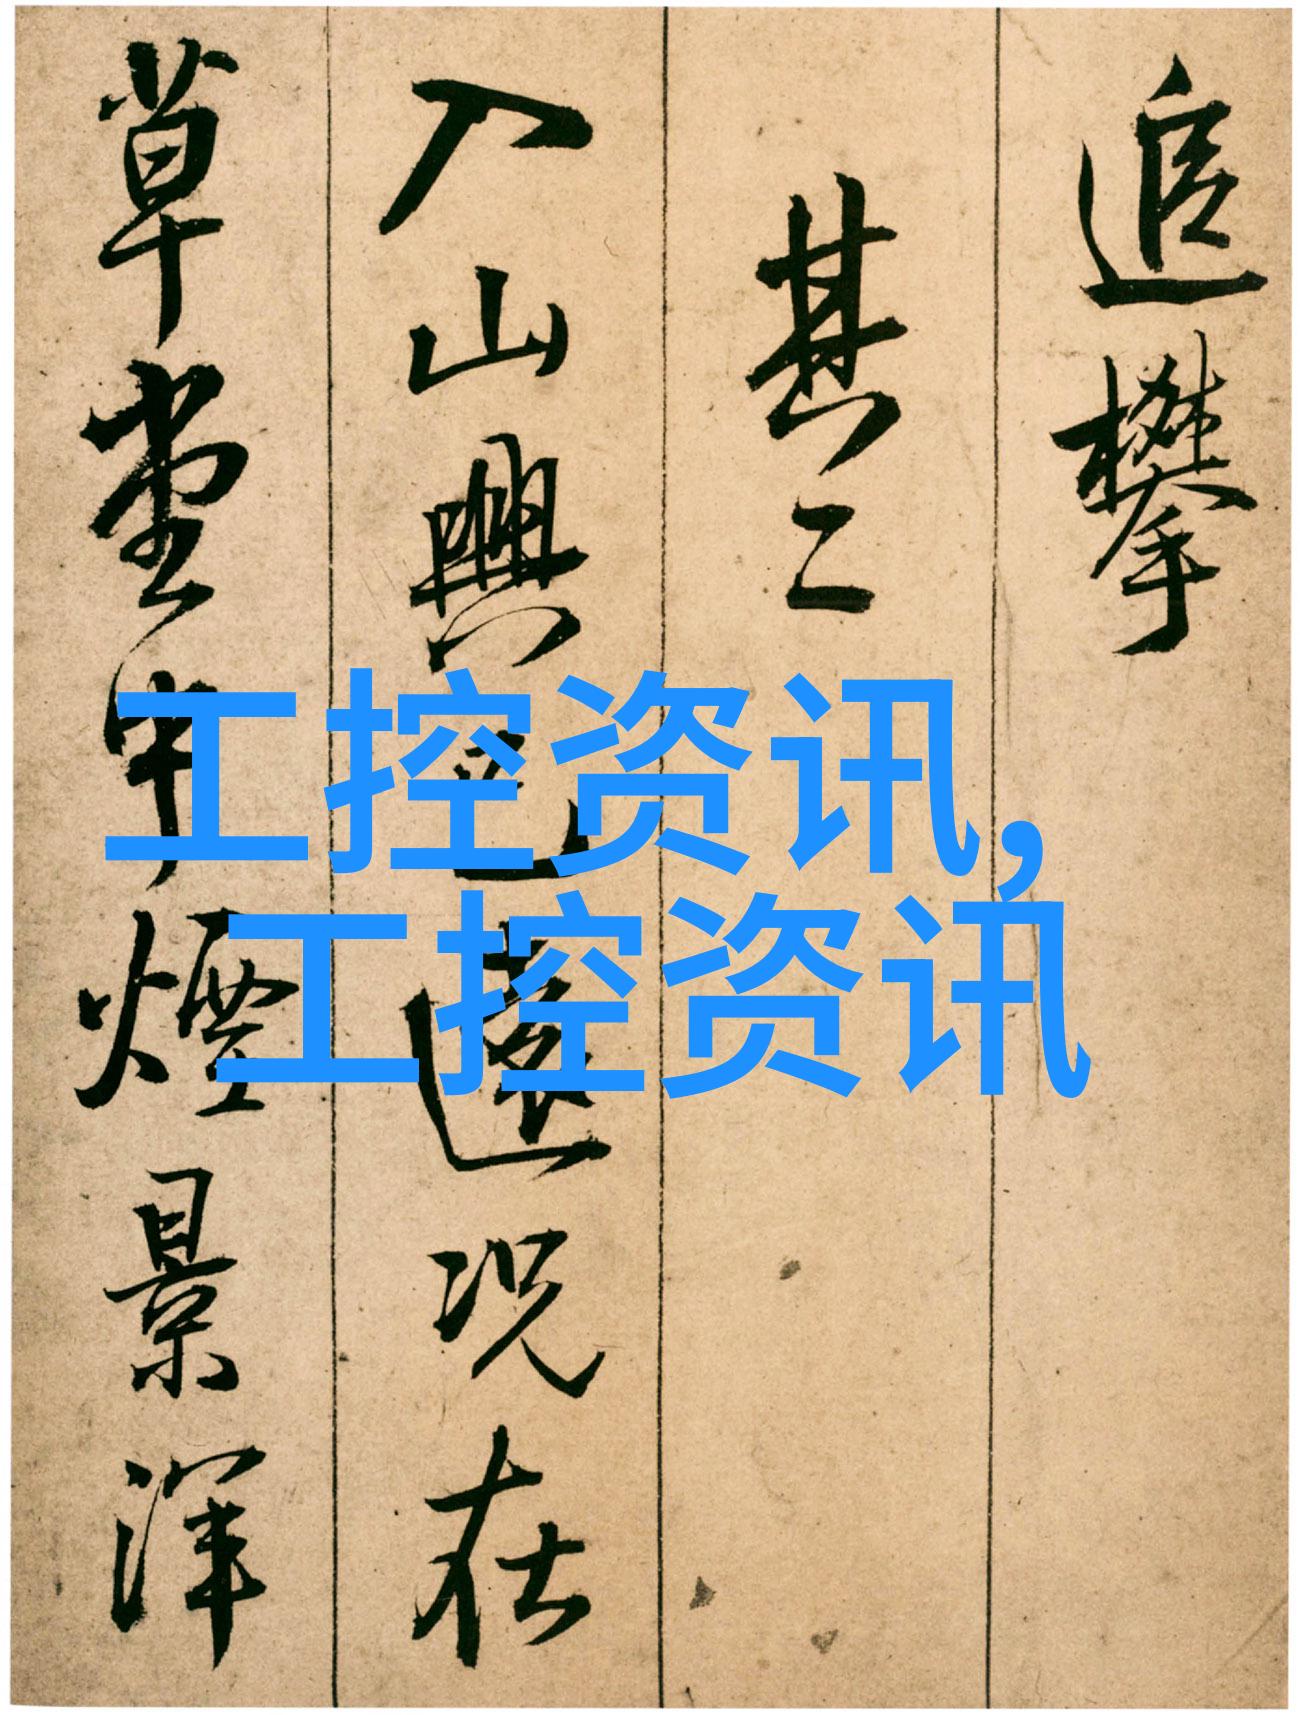 追攀
其二
入山興已遠况在
草堂中煙景渾
工控资讯,
工控资讯